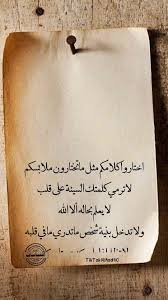 اختاروا كلامكم مثل ماتختارون ملابسكم
لاترمي كلمتك السيئة على قلب
لا يعلم بحاله ألا الله
ولا تدخل بنية شخص ماتدري مافي قلبه
TikTok